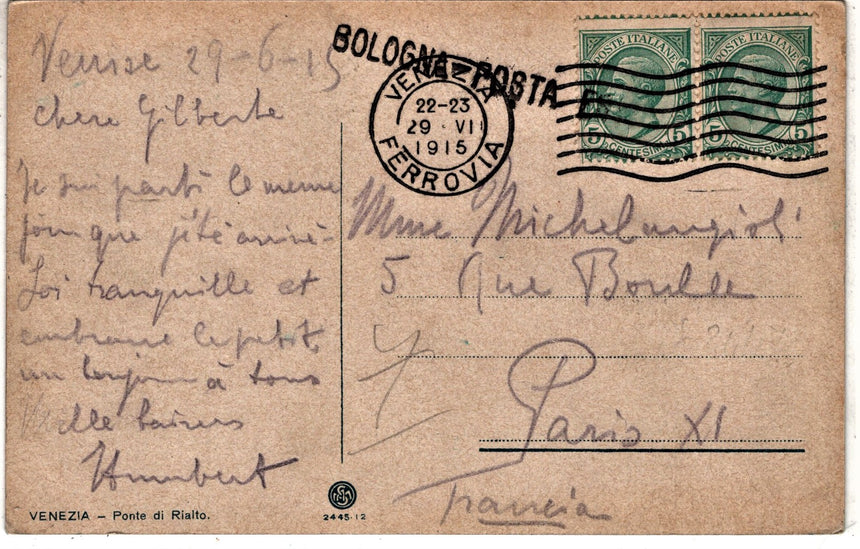 Venise 29-6-15
chere Gilberte
Je sui parti le meme
jour que j'été arrivé
Soi tranquille et
embrasse le petit
un bonjour à tous
Mille baisers
Humbert
VENEZIA – Ponte di Rialto.
2445-12
BOLOGNA POSTA ES
VENEZIA
22-23
29 VI
1915
FERROVIA
POSTE ITALIANE
5 CENTESIMI 5
POSTE ITALIANE
5 CENTESIMI 5
Mme Michelangioli
5 Rue Boulle
Paris XI
Francia